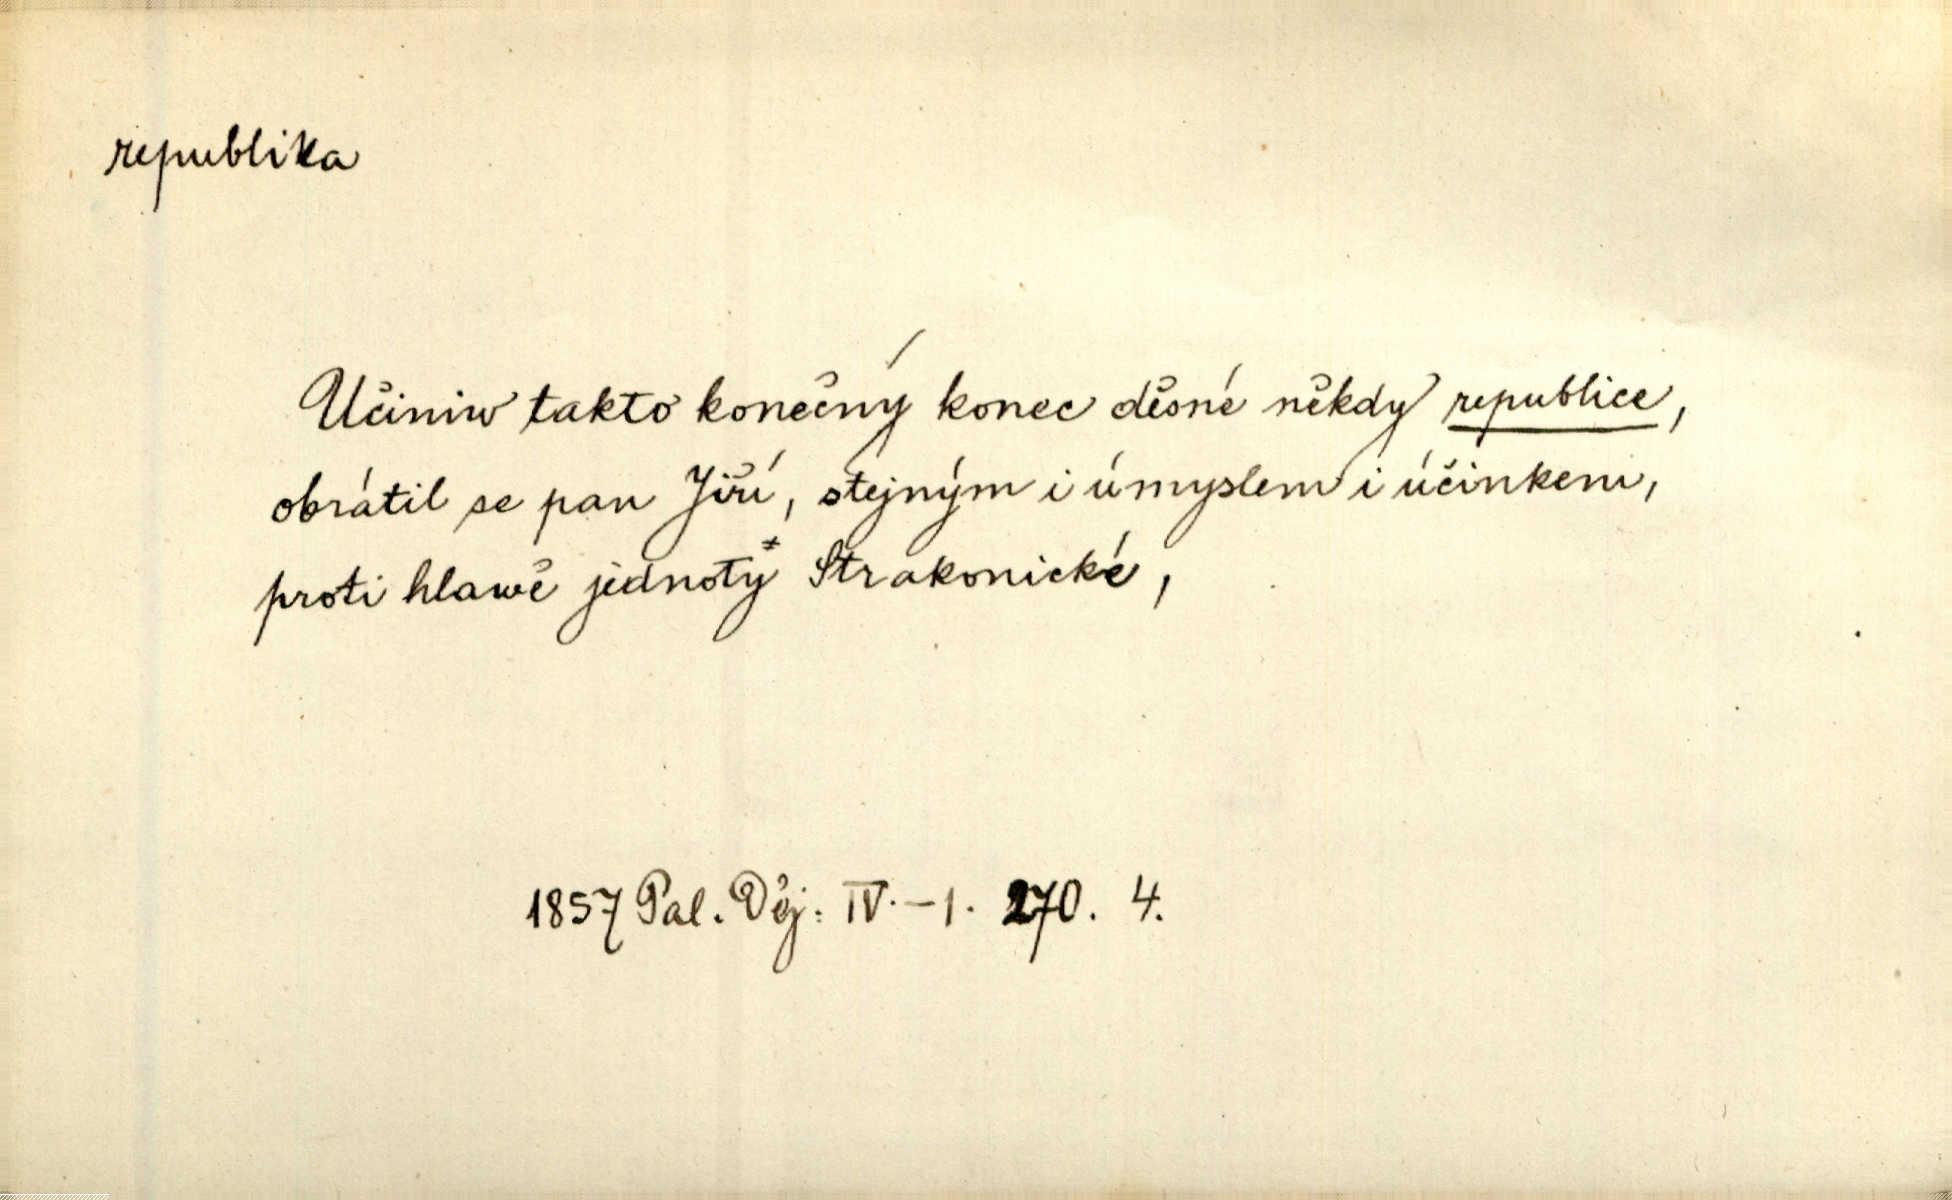 republika
Učiniw takto konečný konec děsné někdy republice,
obrátil se pan Jiří, stejným i úmyslem i účinkem,
proti hlawě jednoty Strakonické,
1857 Pal. Děj. IV.-1. 270. 4.